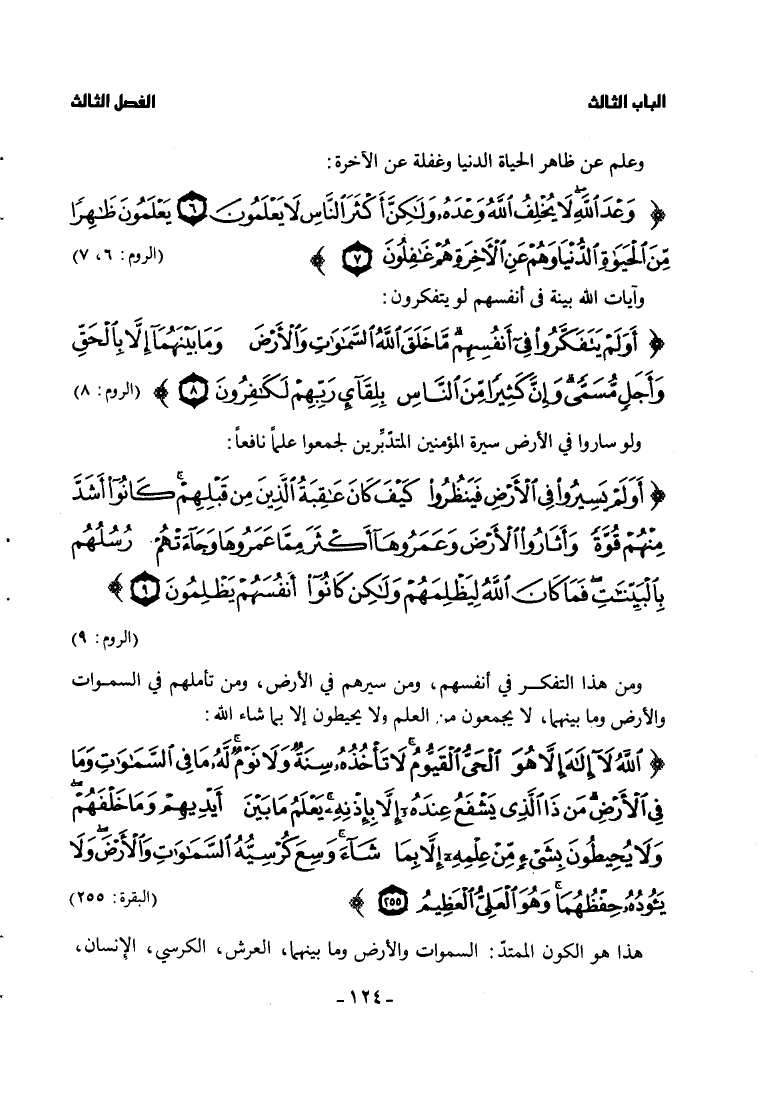 الباب الثالث الفصل الثالث
وعلم عن ظاهر الحياة الدنيا وغفلة عن الآخرة :
﴿ وَعْدَ ٱللَّهِ ۖ لَا يُخْلِفُ ٱللَّهُ وَعْدَهُۥ وَلَٰكِنَّ أَكْثَرَ ٱلنَّاسِ لَا يَعْلَمُونَ ٦ يَعْلَمُونَ ظَٰهِرًا
مِّنَ ٱلْحَيَوٰةِ ٱلدُّنْيَا وَهُمْ عَنِ ٱلْءَاخِرَةِ هُمْ غَٰفِلُونَ ٧ ﴾ (الروم : ٦، ٧)
وآيات الله بينة فى أنفسهم لو يتفكرون :
﴿ أَوَلَمْ يَتَفَكَّرُوا۟ فِىٓ أَنفُسِهِم ۗ مَّا خَلَقَ ٱللَّهُ ٱلسَّمَٰوَٰتِ وَٱلْأَرْضَ وَمَا بَيْنَهُمَآ إِلَّا بِٱلْحَقِّ
وَأَجَلٍ مُّسَمًّى ۗ وَإِنَّ كَثِيرًا مِّنَ ٱلنَّاسِ بِلِقَآئِ رَبِّهِمْ لَكَٰفِرُونَ ٨ ﴾ (الروم : ٨)
ولو ساروا في الأرض سيرة المؤمنين المتدَبِّرين لجمعوا علماً نافعاً :
﴿ أَوَلَمْ يَسِيرُوا۟ فِى ٱلْأَرْضِ فَيَنظُرُوا۟ كَيْفَ كَانَ عَٰقِبَةُ ٱلَّذِينَ مِن قَبْلِهِمْ ۚ كَانُوٓا۟ أَشَدَّ
مِنْهُمْ قُوَّةً وَأَثَارُوا۟ ٱلْأَرْضَ وَعَمَرُوهَآ أَكْثَرَ مِمَّا عَمَرُوهَا وَجَآءَتْهُمْ رُسُلُهُم
بِٱلْبَيِّنَٰتِ ۖ فَمَا كَانَ ٱللَّهُ لِيَظْلِمَهُمْ وَلَٰكِن كَانُوٓا۟ أَنفُسَهُمْ يَظْلِمُونَ ٩ ﴾
(الروم : ٩)
ومن هذا التفكر في أنفسهم، ومن سيرهم في الأرض، ومن تأملهم في السموات
والأرض وما بينهما، لا يجمعون من العلم ولا يحيطون إلا بما شاء الله :
﴿ ٱللَّهُ لَآ إِلَٰهَ إِلَّا هُوَ ٱلْحَىُّ ٱلْقَيُّومُ ۚ لَا تَأْخُذُهُۥ سِنَةٌ وَلَا نَوْمٌ ۚ لَّهُۥ مَا فِى ٱلسَّمَٰوَٰتِ وَمَا
فِى ٱلْأَرْضِ ۗ مَن ذَا ٱلَّذِى يَشْفَعُ عِندَهُۥٓ إِلَّا بِإِذْنِهِۦ ۚ يَعْلَمُ مَا بَيْنَ أَيْدِيهِمْ وَمَا خَلْفَهُمْ ۖ
وَلَا يُحِيطُونَ بِشَىْءٍ مِّنْ عِلْمِهِۦٓ إِلَّا بِمَا شَآءَ ۚ وَسِعَ كُرْسِيُّهُ ٱلسَّمَٰوَٰتِ وَٱلْأَرْضَ ۖ وَلَا
يَـُٔودُهُۥ حِفْظُهُمَا ۚ وَهُوَ ٱلْعَلِىُّ ٱلْعَظِيمُ ٢٥٥ ﴾ (البقرة : ٢٥٥)
هذا هو الكون الممتدّ : السموات والأرض وما بينهما، العرش، الكرسي، الإنسان،
- ١٢٤ -